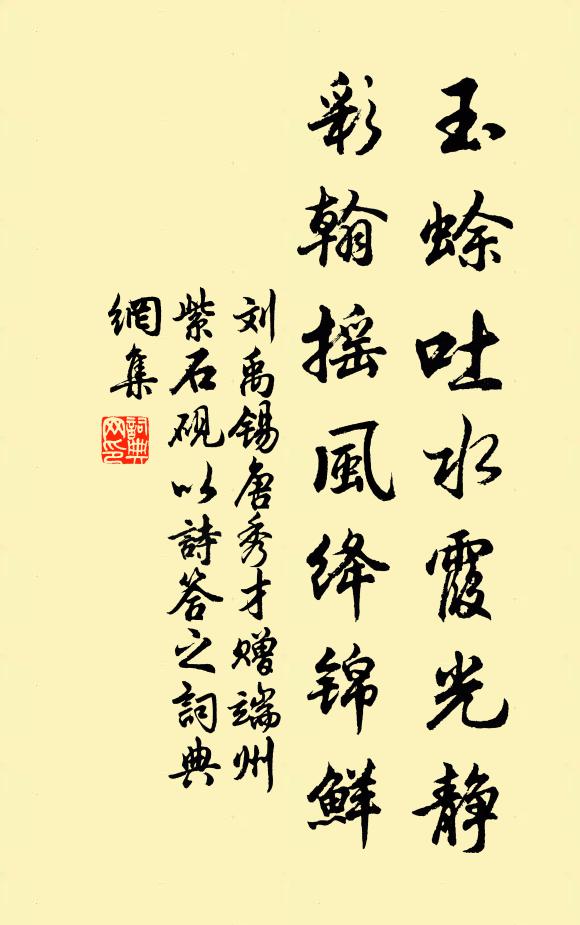 玉蜍吐水霞光静
彩翰摇風绛锦鮮
刘禹锡唐秀才赠端州
紫石砚以詩答之詞典
網集
詞典
网印